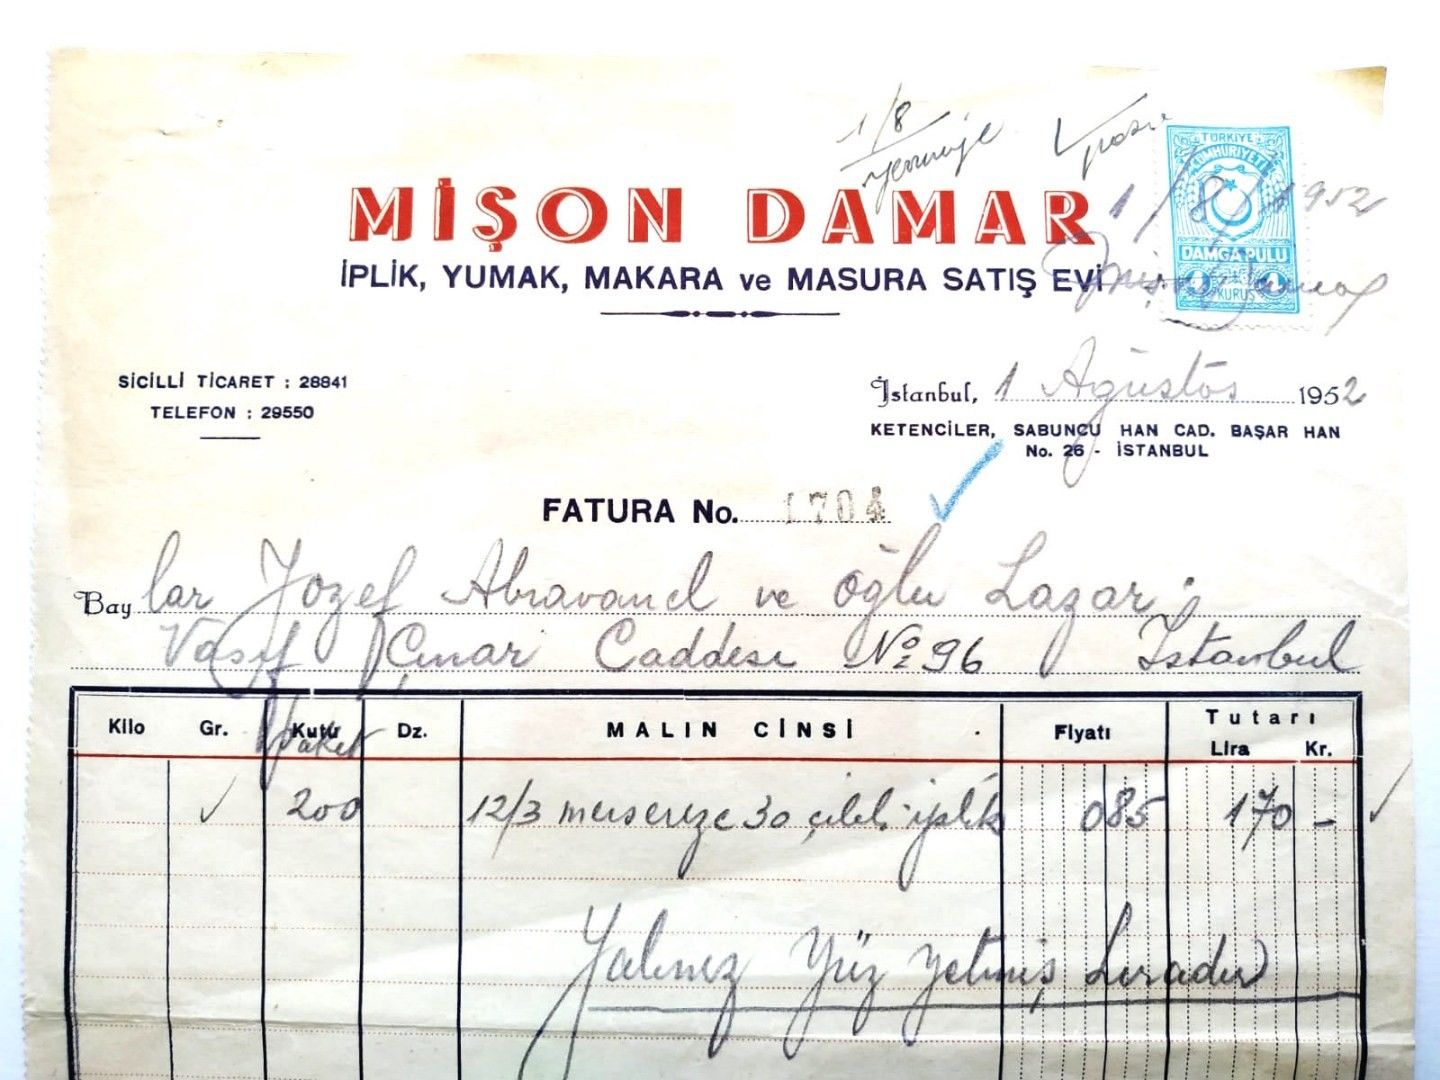 1/8
MİŞON DAMAR
İPLİK, YUMAK, MAKARA ve MASURA SATIŞ EVİ
TÜRKİYE
CUMHURİYETİ
DAMGA PULU
1 KURUŞ 1
1/8/1952
Mişon Damar
SİCİLLİ TİCARET : 28841
TELEFON : 29550
İstanbul, 1 Ağustos 1952
KETENCİLER, SABUNCU HAN CAD. BAŞAR HAN
No. 26 - İSTANBUL
FATURA No. 1704
Baylar Jozef Abravanel ve oğlu Lazar
Vasıf Çınar Caddesi No 96 İstanbul
Kilo Gr. Kutu Dz. MALIN CİNSİ Fiyatı Tutarı
Lira Kr.
Paket
200 12/3 merserize 30 çileli iplik 085 170 -
Yalınız Yüz yetmiş Liradır